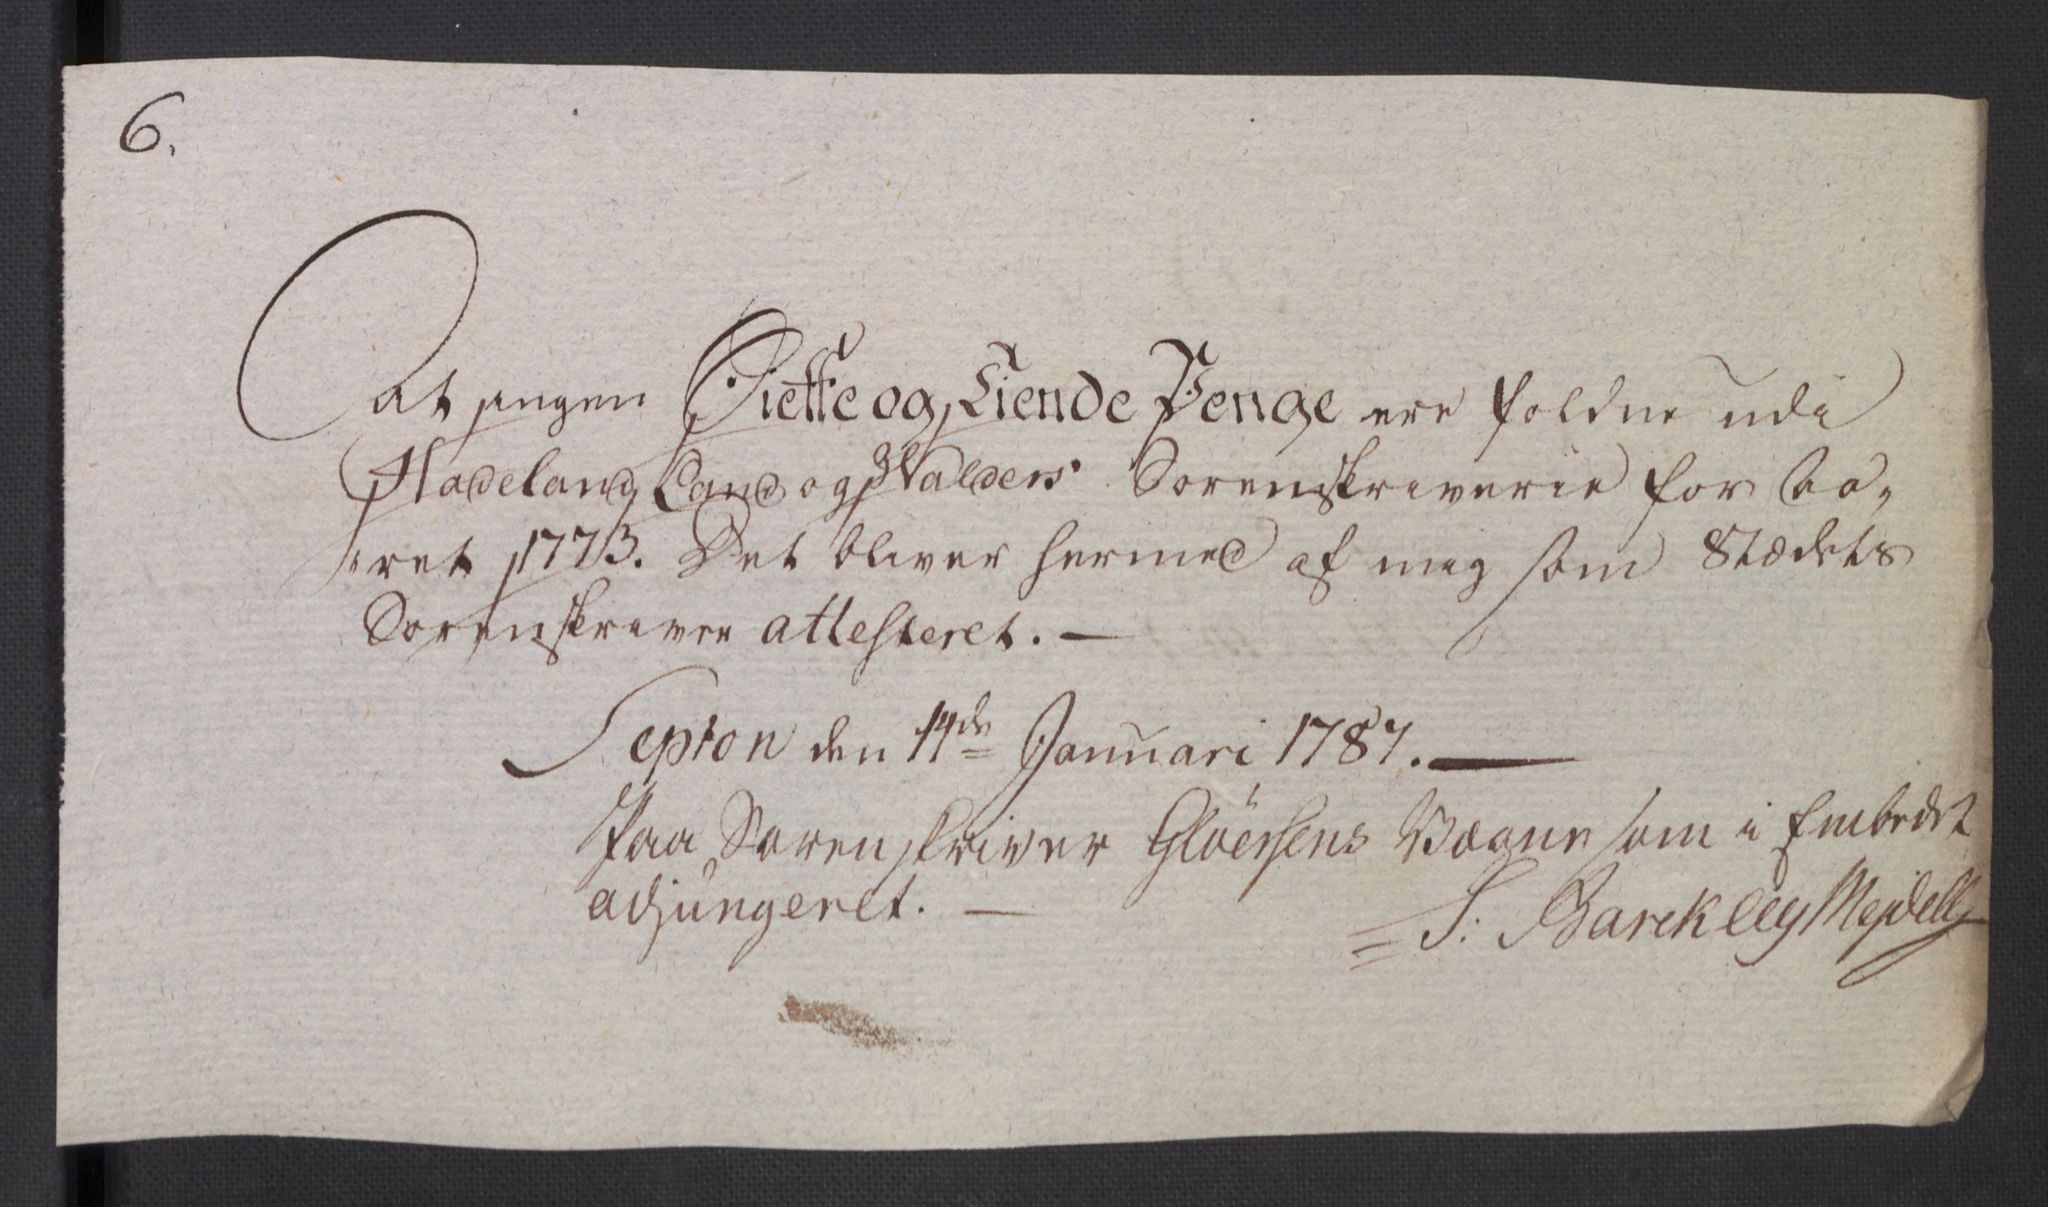 6.
at ingen Siette og Tiende Penge ere faldne udi
Hadeland, Land og Valders Sorenskriverie for Aa-
ret 1773. Det bliver hermed af mig som Stædets
Sorenskriver attesteret. —
Septon den 14de Januari 1787. —
Paa Sorenskriver Gloërsens Vægne som i Embedet
adjungeret. —
S. Barckley Mejdell